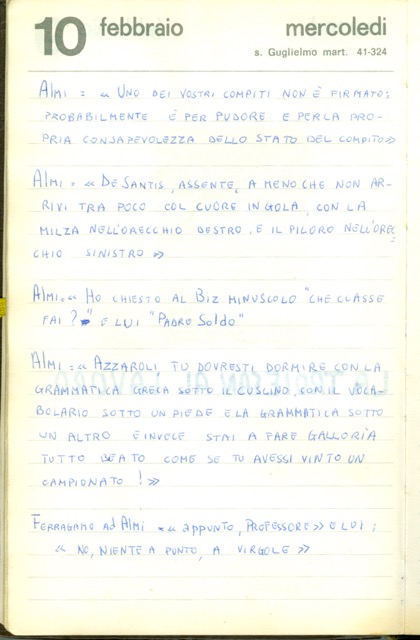 10 febbraio mercoledi
s. Guglielmo mart. 41-324
Almi = « Uno dei vostri compiti non è firmato:
probabilmente è per pudore e per la pro-
pria consapevolezza dello stato del compito»
Almi = « De Santis, assente, a meno che non ar-
rivi tra poco col cuore in gola, con la
milza nell'orecchio destro, e il piloro nell'orec
chio sinistro »
Almi = « Ho chiesto al Biz minuscolo "che classe
fai?" e lui "Padre Soldo"
Almi = « Azzaroli, tu dovresti dormire con la
grammatica greca sotto il cuscino, con il voca-
bolario sotto un piede e la grammatica sotto
un altro e invece stai a fare galloria
tutto beato come se tu avessi vinto un
campionato ! »
Ferragamo ad Almi = « appunto, professore » e lui:
« no, niente a punto, a virgole »